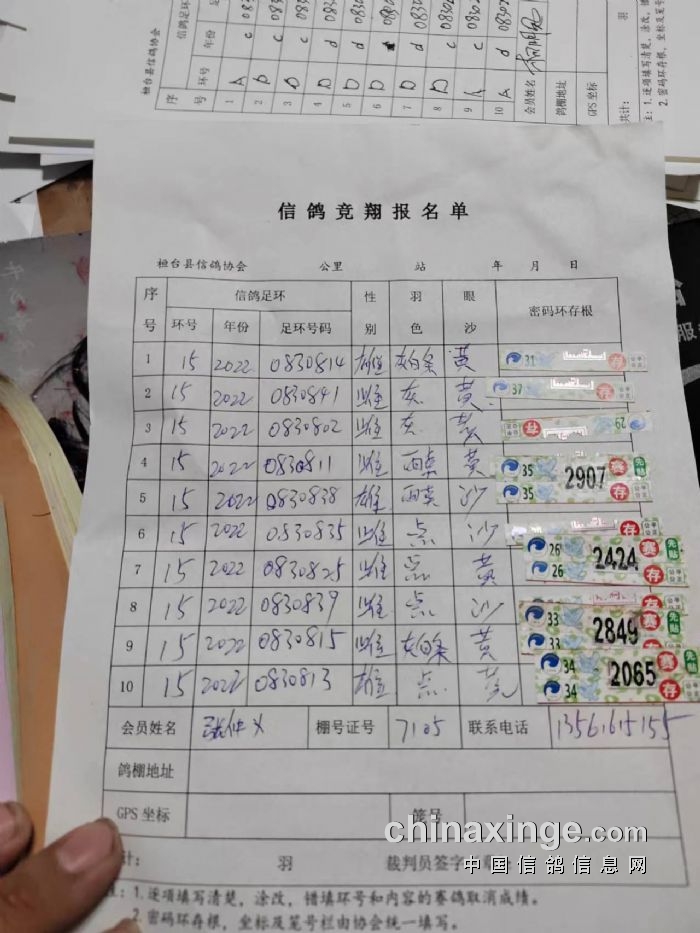 桓台县信鸽协会
信鸽足环
序号 环号 年份
1 A c
2 D c
3 D c
4 D d
5 D d
6 D
7 D d
8 D c
9 A c
10 A d
会员姓名
鸽棚地址
GPS 坐标
共计: 羽
信鸽竞翔报名单
桓台县信鸽协会 公里 站 年 月 日
序号 信鸽足环 性别 羽色 眼沙 密码环存根
环号 年份 足环号码
1 15 2022 0830814 雄 灰白条 黄 31 存
2 15 2022 0830841 雌 灰 黄 37 存
3 15 2022 0830802 雌 灰 黄 29 存
4 15 2022 0830811 雌 雨点 黄 35 2907 赛
5 15 2022 0830838 雄 雨点 沙 35 存
6 15 2022 0830835 雌 点 沙 存
7 15 2022 0830825 雌 点 黄 26 2424 赛 26 存
8 15 2022 0830839 雌 点 沙 存
9 15 2022 0830815 雌 灰白条 黄 33 2849 赛 33
10 15 2022 0830813 雄 点 黄 34 2065 赛 34 存
会员姓名 张仲义 棚号证号 7105 联系电话 13561615155
鸽棚地址
GPS 坐标 笼号
计: 羽 裁判员签字
注:1.逐项填写清楚,涂改,错填环号和内容的赛鸽取消成绩。
2.密码环存根,坐标及笼号栏由协会统一填写。
chinaxinge.com
中国信鸽信息网